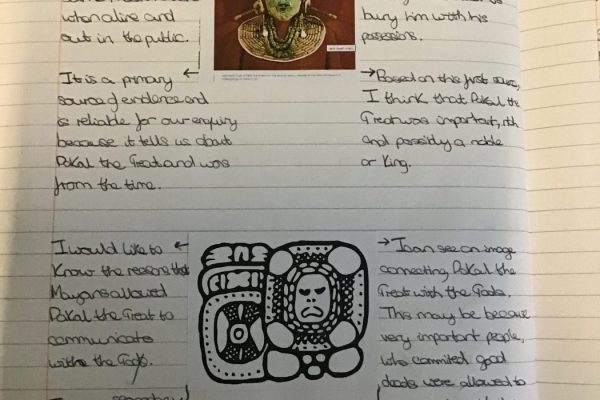 when alive and
out in the public.
bury him with his
possessions.
It is a primary
source of evidence and
is reliable for our enquiry
because it tells us about
Pakal the Great and was
from the time.
Based on this first source,
I think that Pakal the
Great was important, rich
and possibly a noble
or King.
I would like to
know the reasons that
Mayans allowed
Pakal the Great to
communicate
with the Gods.
I can see an image
connecting Pakal the
Great with the Gods.
This may be because
very important people,
who commited good
deeds were allowed to